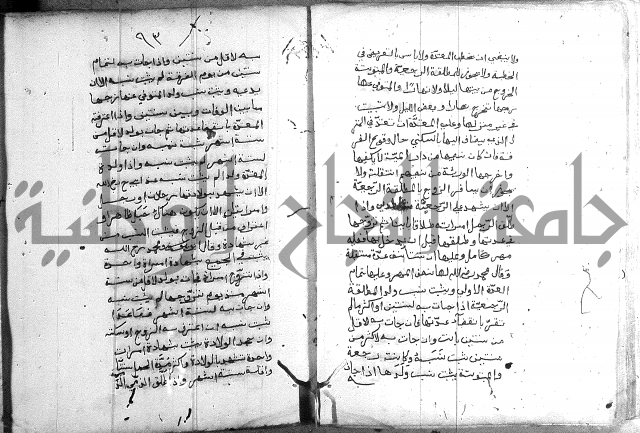 ولا ينبغي ان تخطب المعتدة ولا باس بالتعريض في
الخطبة ولا يجوز للمطلقة الرجعية والمبتوتة
الخروج من بيتها ليلا ولا نهارا والمتوفى عنها
زوجها تخرج نهارا وبعض الليل ولا تبيت
في غير منزلها وعلى المعتدة ان تعتد في المنزل
الذي يضاف اليها بالسكنى حال وقوع الفر
قة فان كان نصيبها من دار الميت لا يكفيها
واخرجها الورثة من نصيبهم انتقلت ولا
يجوز ان يسافر الزوج بالمطلقة الرجعية
الا ان يشهد على الرجعة واذا
طلق الرجل امراته طلاقا باينا ثم تزوجها
في عدتها وطلقها قبل ان يدخل بها فعليه
مهر كامل وعليها عدة مستقلة
وقال محمد لها نصف المهر وعليها تمام
العدة الاولى ويثبت نسب ولد المطلقة
الرجعية اذا جات به لسنتين او اكثر ما لم
تقر بانقضاء عدتها فان جات به لاقل
من سنتين بانت وان جات به لاكثر من
سنتين ثبت نسبه وكانت رجعة
والمبتوتة يثبت نسب ولدها اذا جات
به
٩٣
به لاقل من سنتين واذا جات به لتمام
سنتين من يوم الفرقة لم يثبت نسبه الا ان
يدعيه ويثبت نسب ولد المتوفى عنها زوجها
ما بين الوفات وبين سنتين واذا اعترفت
المعتدة بانقضاء عدتها ثم جات بولد لاقل من
ستة اشهر ثبت نسبه وان جات به
لستة اشهر لم يثبت نسبه واذا ولدت
المعتدة ولدا لم يثبت نسبه عند ابي حنيفة رحمه الله
الا ان يشهد بولادتها رجلان او رجل
وامراتان الا ان يكون هناك حبل ظاهر او
اعتراف من قبل الزوج فيثبت النسب من
غير شهادة وقال ابو يوسف ومحمد رحمه الله
يثبت في الجميع بشهادة امراة واحدة
واذا تزوج امراة فجات بولد لاقل من ستة
اشهر منذ يوم تزوجها لم يثبت نسبه
وان جات به لستة اشهر فصاعدا
يثبت نسبه ان اعترف به الزوج او سكت
وان جحد الولادة يثبت بشهادة امراة
واحدة تشهد بالولادة واكثر مدة الحمل سنتان
واقله ستة اشهر واذا طلق الذمي الذمية
جامعة النجاح الوطنية